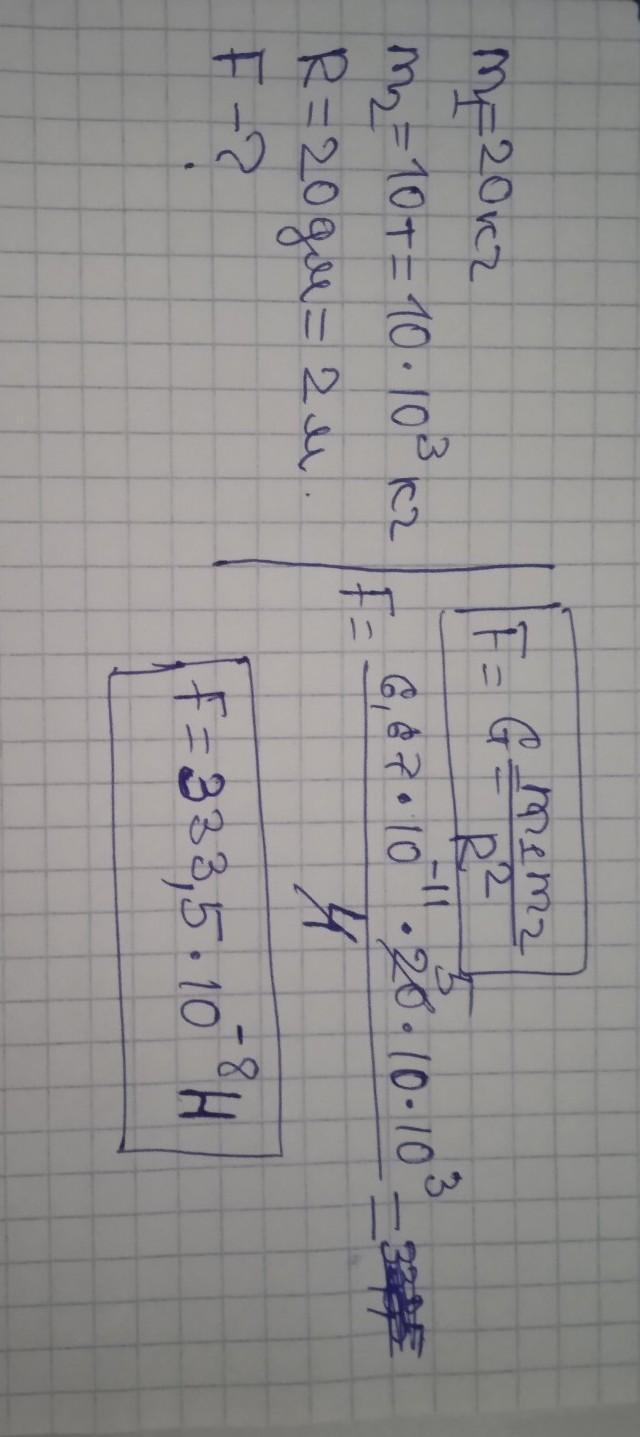 m₁=20кг
m₂=10т=10·10³ кг
R=20дм=2м.
F-?
F= G m₁m₂/R²
F= 6,67·10⁻¹¹·20·10·10³/4 =
5
F=333,5·10⁻⁸Н